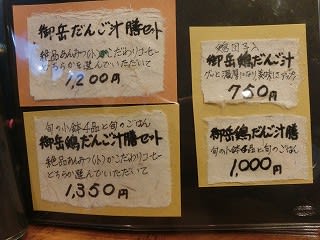 御岳だんご汁膳セット
絶品あんみつ(小)かこだわりコーヒー
どちらかを選んでいただいて
1,200円
旬の小鉢4品と旬のごはん
御岳鶏だんご汁膳セット
絶品あんみつ(小)かこだわりコーヒー
どちらかを選んでいただいて
1,350円
鶏団子入
御岳鶏だんご汁
グッと濃厚になり美味しさアップ
750円
御岳鶏だんご汁膳
旬の小鉢4品と旬のごはん
1,000円